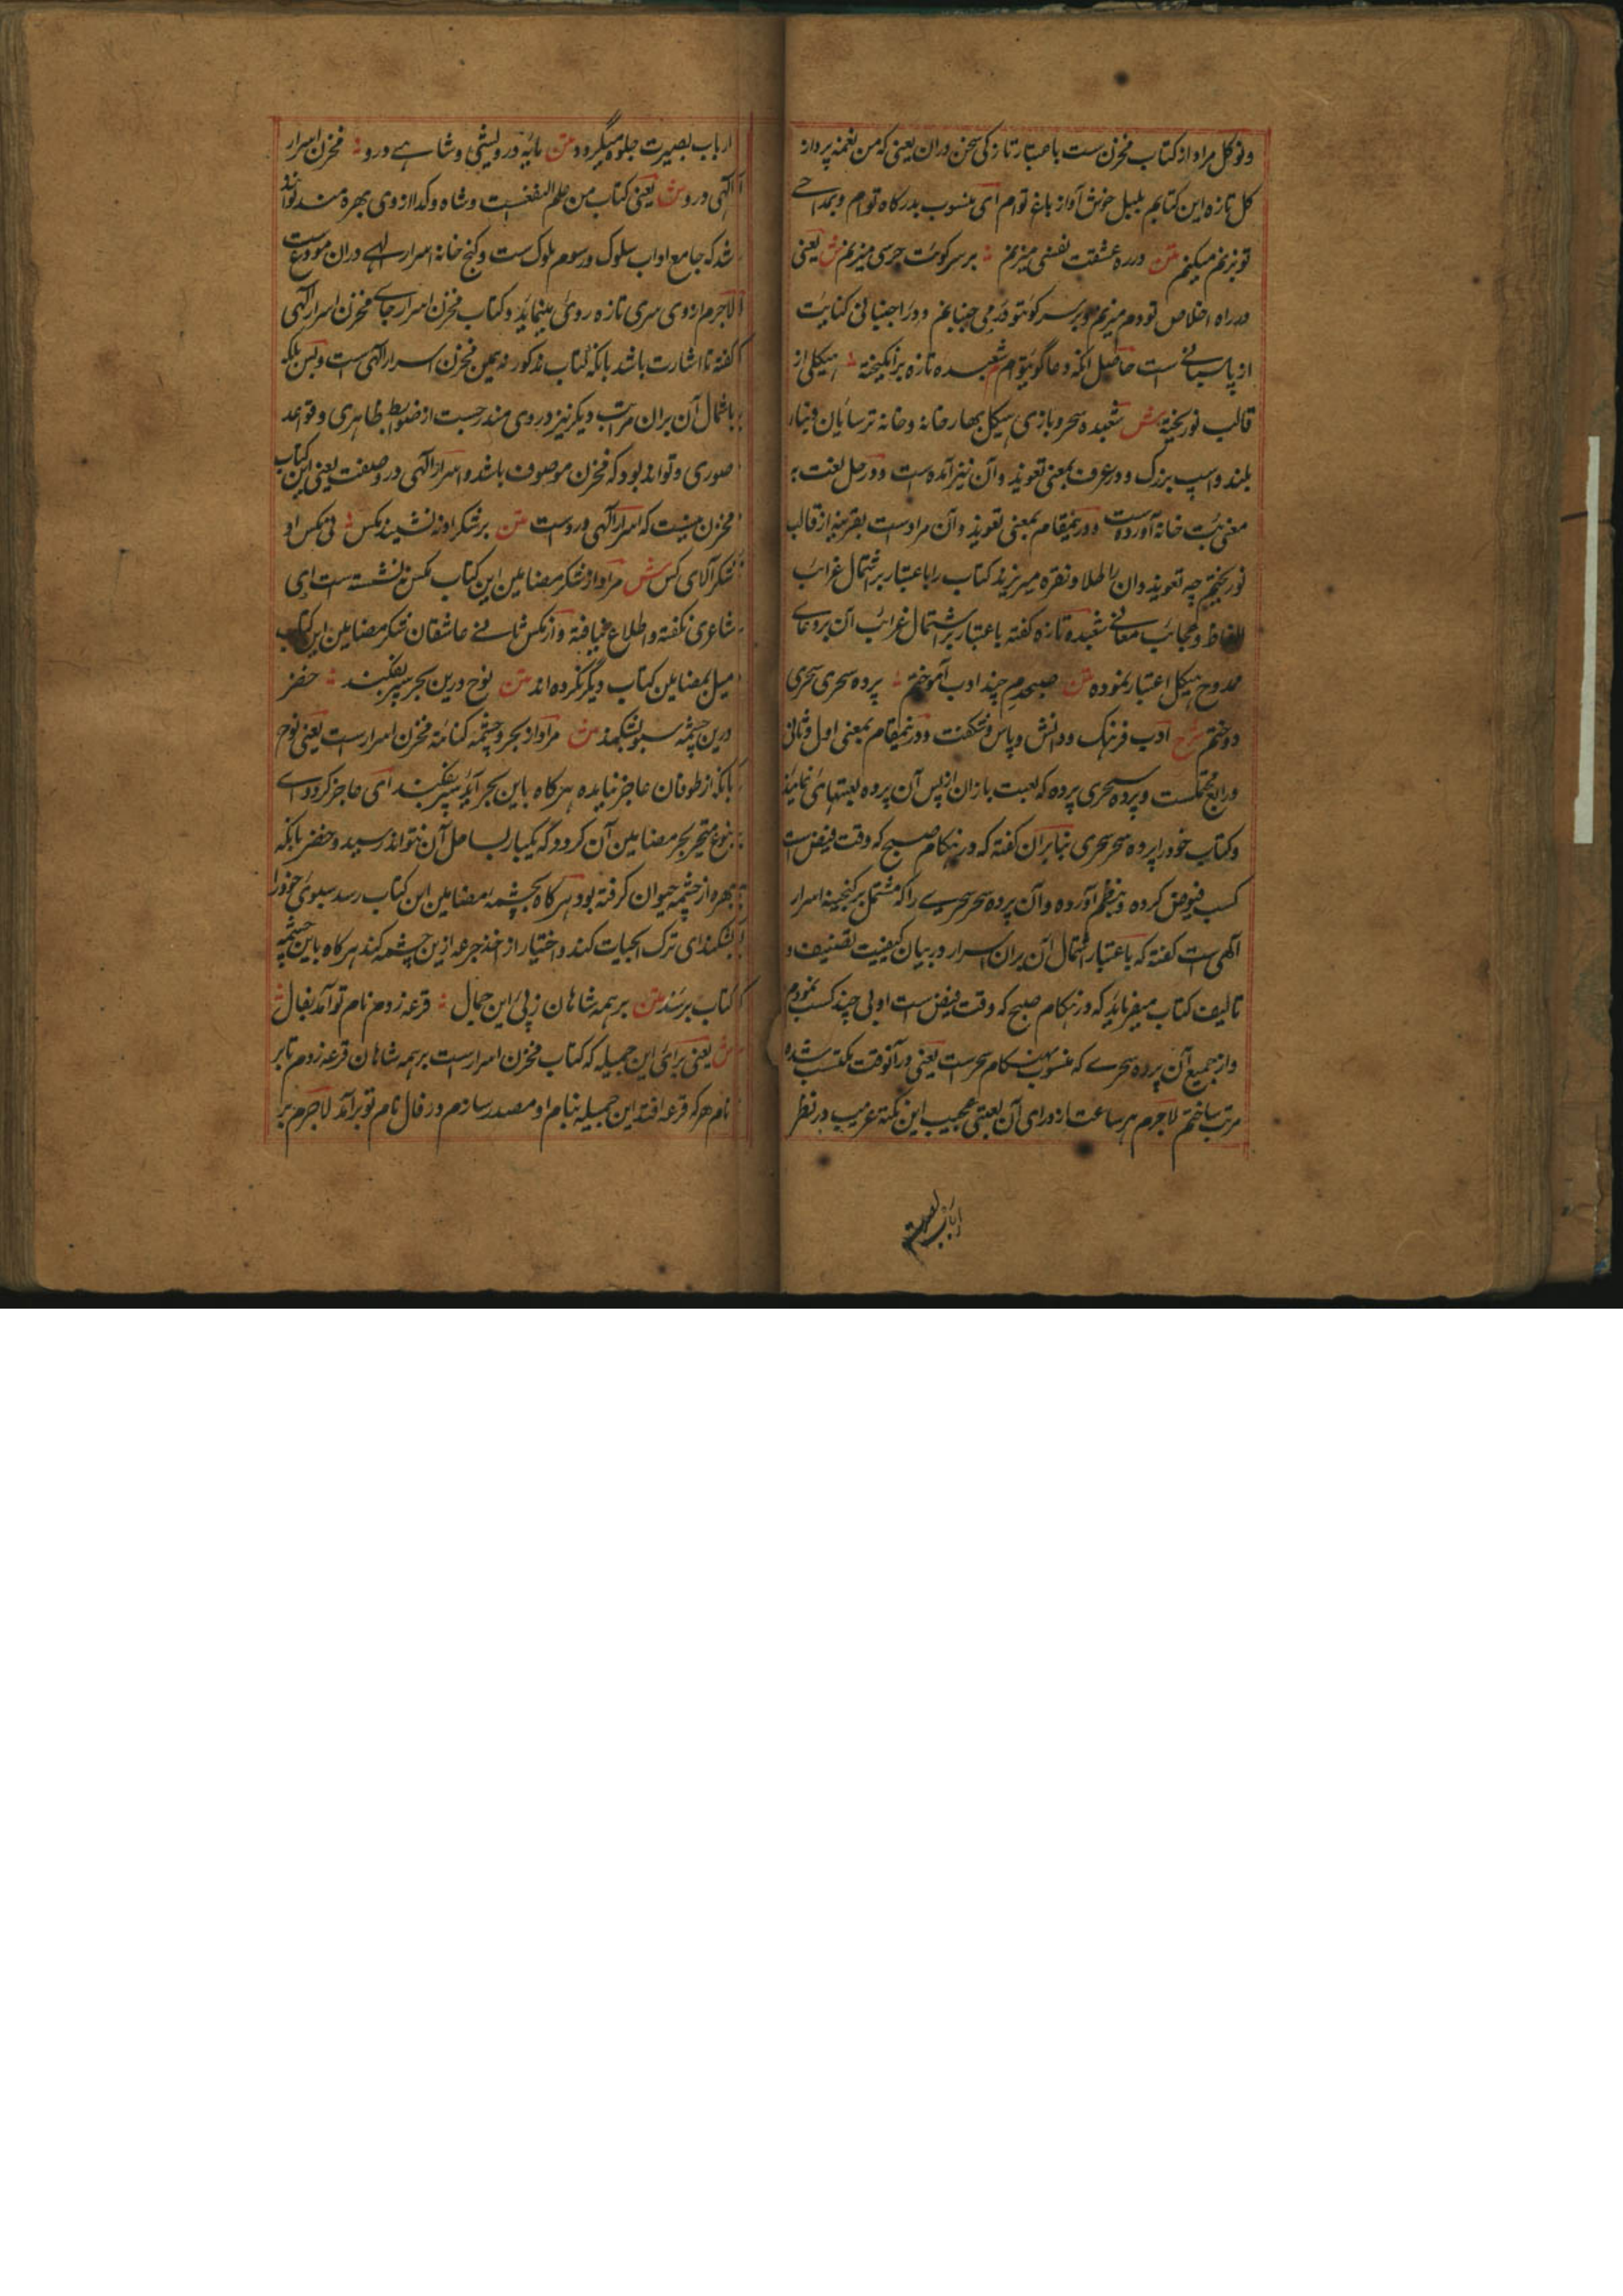 ونو کل مراد از کتاب مخزن ست باعتبار تازکی سخن دران یعنی که من نغمه پرداز
کل تازه این کتابم بلبل خوش آواز باغ توام ای منسوب بدرکاه توام و بمداحی
تو نیز میکنم متن در ره عشقت نفسی میزنم بر سر کویت جرسی میزنم ش یعنی
در راه اخلاص تو دم میزنم و بر سر کوی تو در می جنبانم و درا جنبانی کنایت
از پاسبانی است حاصل آنکه دعاگوی توام شعبده تازه برانکیخته هیکلی از
قالب نو ریخته ش شعبده سحر و بازی هیکل بهارخانه و خانه ترسایان و بنای
بلند و اسپ بزرک و در عرف بمعنی تعویذ و آن نیز آمده است و در حل لغت به
معنی بت خانه آورده است و درینمقام بمعنی تعویذ و آن مرادست بقرینه از قالب
نو ریختم چه تعویذ و آن را طلا و نقره میریزند کتاب را باعتبار اشتمال غرائب
الفاظ و عجائب معانی شعبده تازه کفته باعتبار اشتمال غرائب آن بر دعای
ممدوح هیکل اعتبار نموده متن صبحدم چند ادب آموختم پرده سحری سحری
دوختم شرح ادب فرهنک و دانش و پاس و شکفت و درینمقام بمعنی اول و ثانی
و رابع محکمست و پرده سحری پرده که لعبت بازان از پس آن پرده لعبتها می نمایند
و کتاب خود را پرده سحر سحری بنابران کفته که در هنکام صبح که وقت فیض است
کسب فیوض کرده و بنظم آورده و آن پرده سحر سحری را که مشتمل بر کنجینه اسرار
الهی است کفته که باعتبار اشتمال آن بران اسرار در بیان کیفیت تصنیف و
تالیف کتاب میفرماید که در هنکام صبح که وقت فیض ست ادبی چند کسب نمودم
و از جمیع آن پرده سحری که منسوب بهنکام سحرست یعنی در آنوقت مکتسب شده
مرتب ساختم لاجرم هر ساعت از ورای آن لعبتی عجیب این نکته غریب در نظر
ارباب بصیرت
ارباب بصیرت جلوه میکیرد و متن مایه درویشی و شاهی درو مخزن اسرار
الهی درو ش یعنی کتاب من علم النفعست و شاه و کدا از وی بهره مند تواند
شد که جامع اداب سلوک و رسوم ملوک ست و کنج خانه اسرار الهی دران مودعست
لاجرم از وی سری تازه روی مینماید و کتاب مخزن اسرار جای مخزن اسرار الهی
کفته تا اشارت باشد بانکه کتاب مذکور نه همین مخزن اسرار الهی است و بس بلکه
باشتمال آن بران مراتب دیکر نیز در وی مندرجست از ضوابط ظاهری و قواعد
صوری و تواند بود که مخزن موصوف باشد و اسرار الهی درو صفت یعنی این کتاب
مخزن نیست که اسرار الهی دروست متن بر شکر او ننشیند مکس نی مکس او
شکر آلای کس ش مراد از شکر مضامین این کتاب کس ننشسته است ای
شاعری نکفته و اطلاع نیافته و از مکس ثانی عاشقان شکر مضامین این کتاب
میل بمضامین کتاب دیگر نکرده اند متن نوح درین بحر سپر بفکند خضر
درین چشمه سبو بشکند ش مراد از بحر و چشمه کنایه مخزن اسرارست یعنی نوح
بانکه از طوفان عاجز نیامده هر کاه باین بحر آید سپر بفکند ای عاجز کردد ای
بنوع متحیر بحر مضامین آن کردد که یکبار بساحل آن نتواند رسید و خضر بانکه
بهره از چشمه حیوان کرفته بود هر کاه بچشمه مضامین این کتاب رسد سبوی خود را
بشکند ای ترک الحیات کند و اختیار از اخذ جرعه ازین چشمه کند هر کاه باین چشمه
کتاب برسند متن بر همه شاهان ز پی این جمال قرعه زدم نام تو آمد بفال
ش یعنی برای این جمیله که کتاب مخزن اسرارست بر همه شاهان قرعه زدم تا بر
نام هر که قرعه افتد این جمیله بنام او مصدر سازم در فال نام تو برآمد لاجرم بر